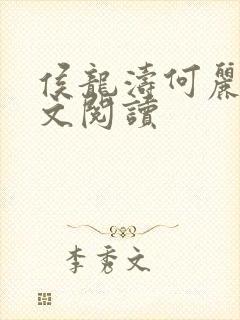 侯龍濤何麗
文閱讀
李秀文